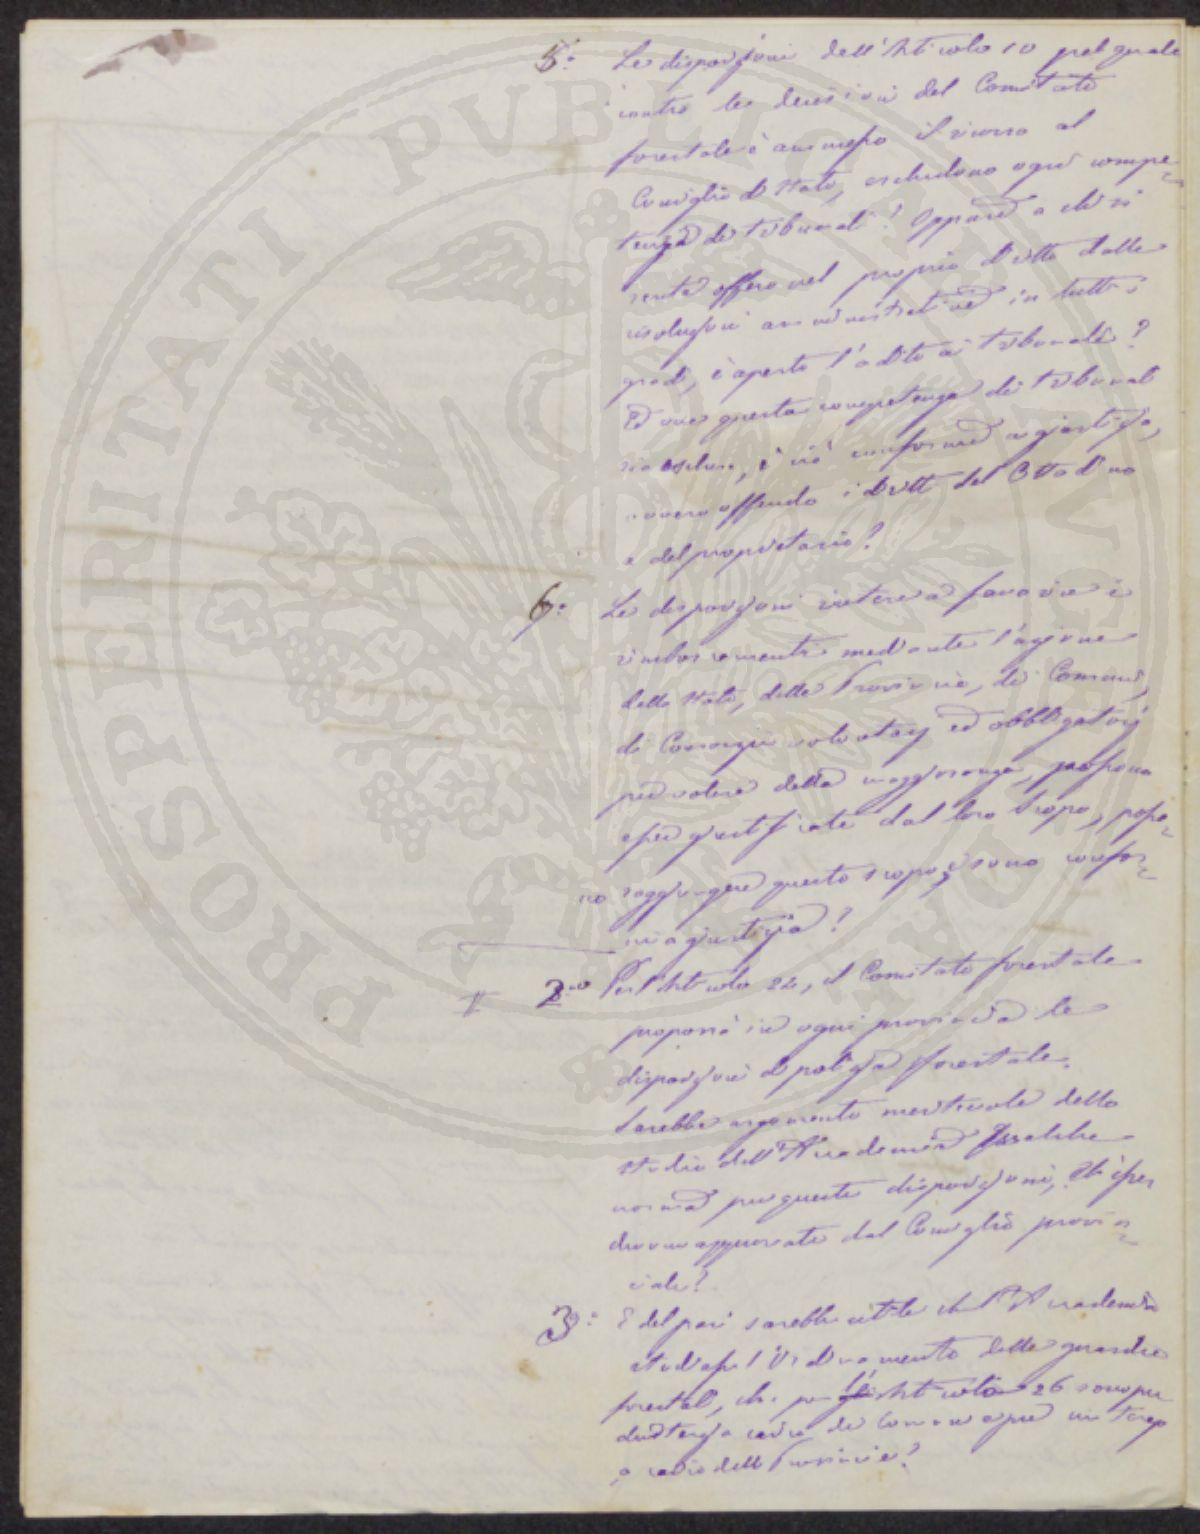 5.° Le disposizioni dell'Articolo 10 pel quale
contro le decisioni del Comitato
forestale è ammesso il ricorso al
Consiglio di Stato, escludono ogni compe-
tenza di tribunali? Oppure a chi si
sente offeso nel proprio diritto dalle
risoluzioni amministrative in tutti i
gradi, è aperto l'adito ai tribunali?
Ed ove questa competenza dei tribunali
sia esclusa, è ciò conforme a giustizia,
ovvero offende i diritti del Cittadino
e del proprietario?
6.° Le disposizioni intese a favorire i
rimboscamenti mediante l'azione
dello Stato, delle Provincie, dei Comuni,
di Consorzii volontarj ed obbligatorj
per volere della maggioranza, possono
esser giustificate dal loro scopo, posso-
no raggiungere questo scopo, e sono confor-
mi a giustizia?
II 2.do Per l'Articolo 24, il Comitato forestale
proporrà in ogni provincia le
disposizioni di polizia forestale.
Sarebbe argomento meritevole dello
studio dell'Accademia qualche
norma per queste disposizioni, che esser
devono approvate dal Consiglio provin-
ciale?
3.° E del pari sarebbe utile che l'Accademia
studiasse l'ordinamento delle guardie
forestali, che per l'Articolo 26 sono per
due terzi a carico dei Comuni e per un terzo
a carico delle Provincie?
PROSPERITATI PVBLICAE AVGENDAE